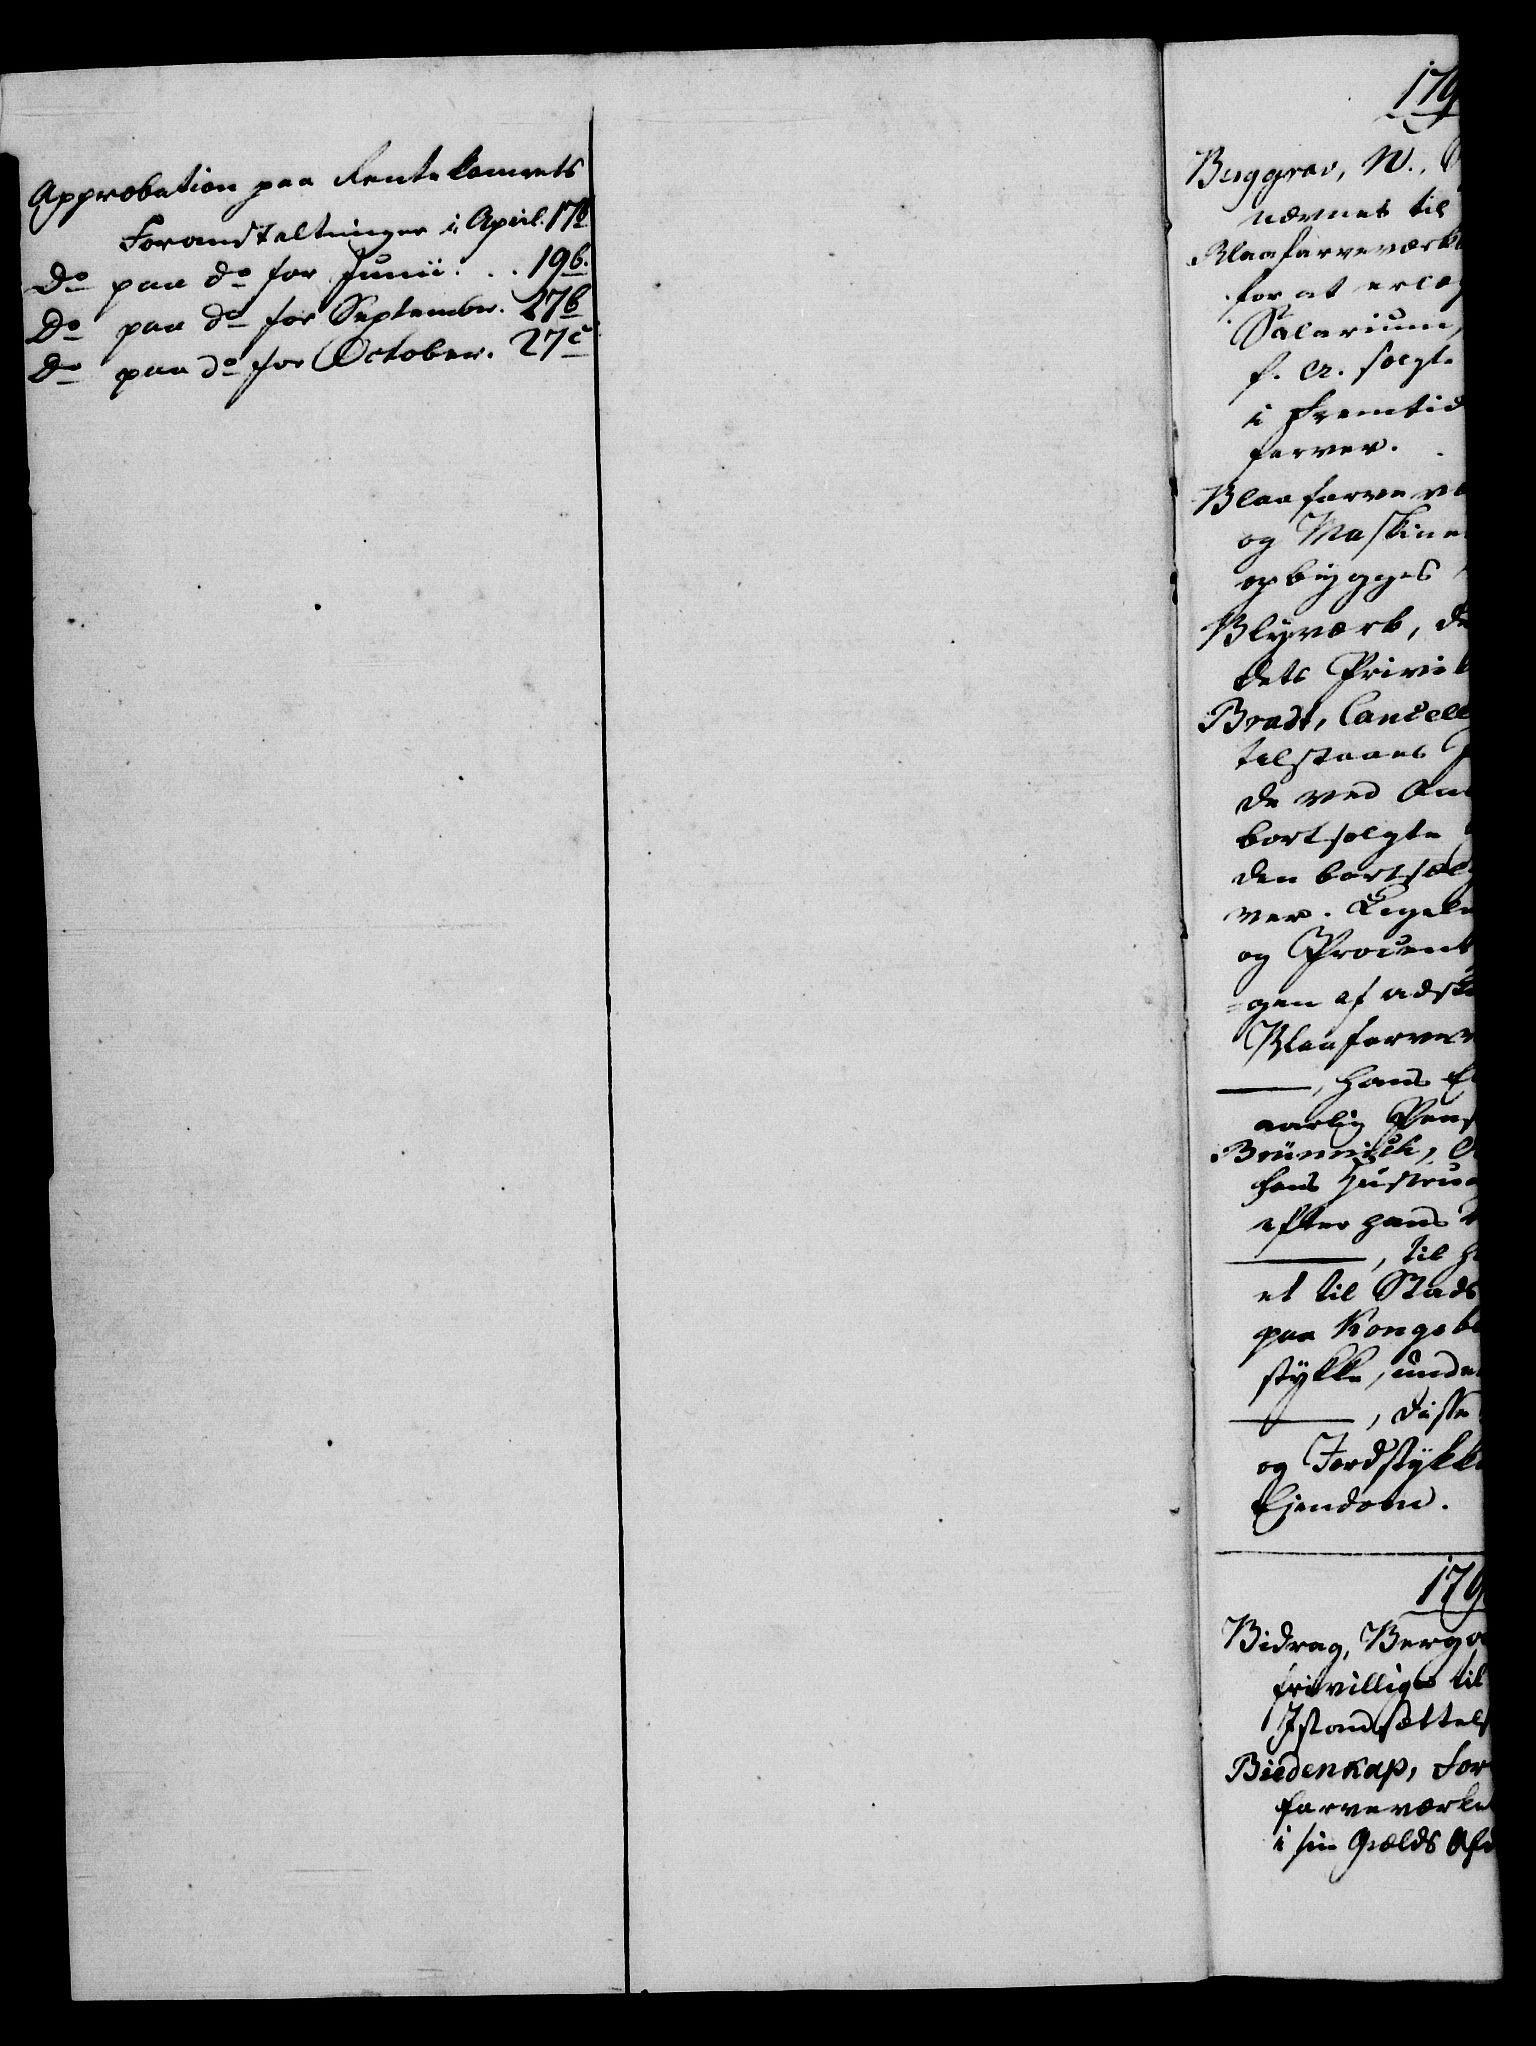 Approbation paa Rentekamrets
Foranstaltninger i April. 17b
Do paa do for Junii. . . 19b.
Do paa do for September. 27b
Do paa do for October. 27c
179
Berggrav, N.,
nævnes til
Blaafarveværk
for at erlæg
Salarium,
f. A. solgte
i Fremtid
farver.
Blaafarve væ
og Maskine
opbygges
Blyværk, de
dets Privil
Bradt, Cancell
tilstaaes
de ved Au
bortsolgte
den bortsolg
ver. Ligele
og Procent
gen af adski
Blaafarver
———, Hans E
aarlig Pens
Brünnich,
hans Hustrue
efter hans
———, til h
et til Stads
paa Kongsb
stykke, unde
———, disse
og Jordstykk
Ejendom.
179
Bidrag, Berg
frivillige til
Istandsættels
Biedenkap, For
farveværke
i sin Gælds Afd